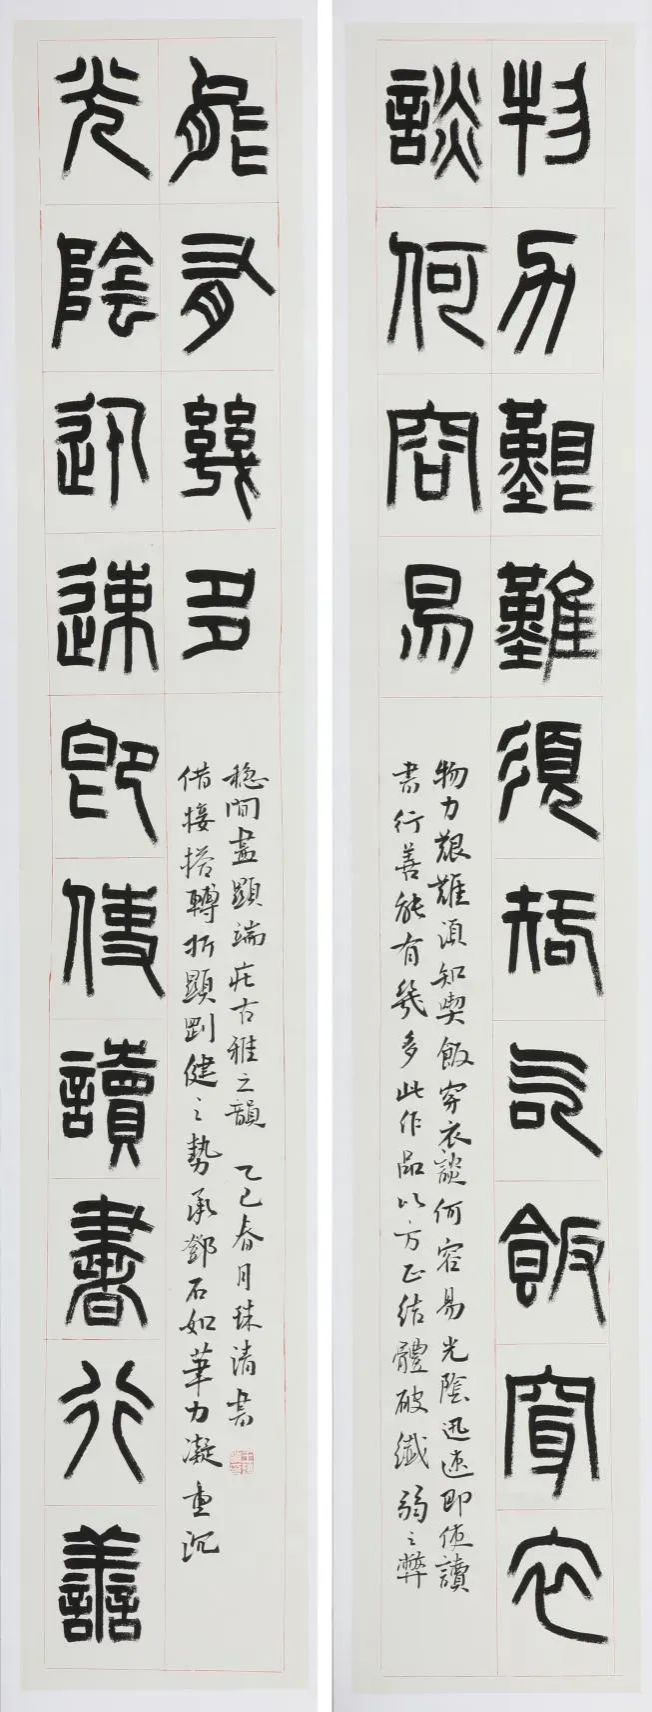 物力艱難須知吃飯穿衣
談何容易
物力艱難須知喫飯穿衣談何容易光陰迅速即使讀
書行善能有幾多此作品以方正結體破纖弱之弊
光陰迅速即使讀書行善
能有幾多
借接搭轉折顯剛健之勢承鄧石如筆力凝重沉
穩間盡顯端莊古雅之韻 乙巳春月珠清書